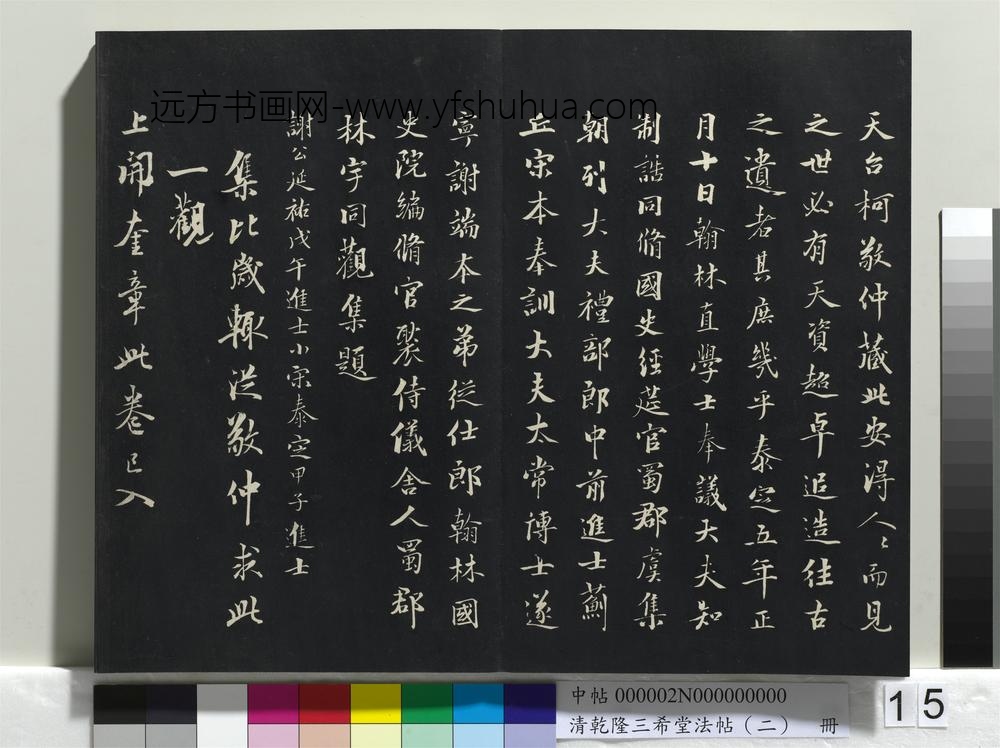 天台柯敬仲藏此安得人〻而見
之世必有天資超卓追造往古
之遺者其庶幾乎泰定五年正
月十日翰林直學士奉議大夫知
制誥同脩國史經莚官蜀郡虞集
朝列大夫禮部郎中前進士薊
丘宋本奉訓大夫太常博士遂
寧謝端本之弟從仕郎翰林國
史院編脩官褧侍儀舍人蜀郡
林宇同觀集題
謝公延祐戊午進士小宋泰定甲子進士
集比歲輙從敬仲求此
一觀
上開奎章此卷已入
远方书画网-www.yfshuhua.com
中帖 000002N000000000
清乾隆三希堂法帖(二) 冊
15